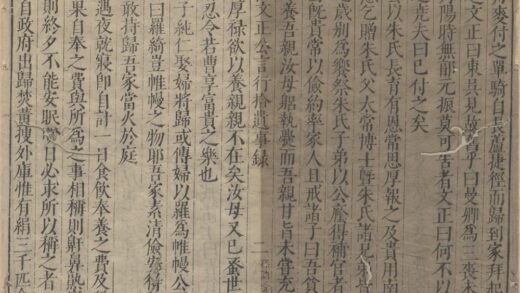 舟麥付之單騎自長蘆捷徑而歸到家拜起
文正曰東吳見故舊乎曰曼卿為三喪未
陽時無郭元振莫可告者文正曰何不以
堯夫曰已付之矣
以朱氏長育有恩常思厚報之及貴用南
恩乞贈朱氏父太常博士暨朱氏諸兄弟皆
歲別為饗祭朱氏子弟以公廕得補官者
既貴常以儉約率家人且戒諸子曰吾貧
養吾親汝母躬執爨而吾親甘旨未嘗充
文正公言行拾遺事錄 一
厚祿欲以養親親不在矣汝母又已蚤世
忍令若曹享富貴之樂也
子純仁娶婦將歸或傳婦以羅為帷幔公
曰羅綺豈帷幔之物耶吾家素清儉安得
敢持歸吾家當火於庭
遇夜就寢即自計一日食飲奉養之費及
果自奉之費與所為之事相稱則鼾鼻熟
則終夕不能安眠翌日必求所以稱之者
自政府出歸焚黃搜外庫惟有絹三千匹